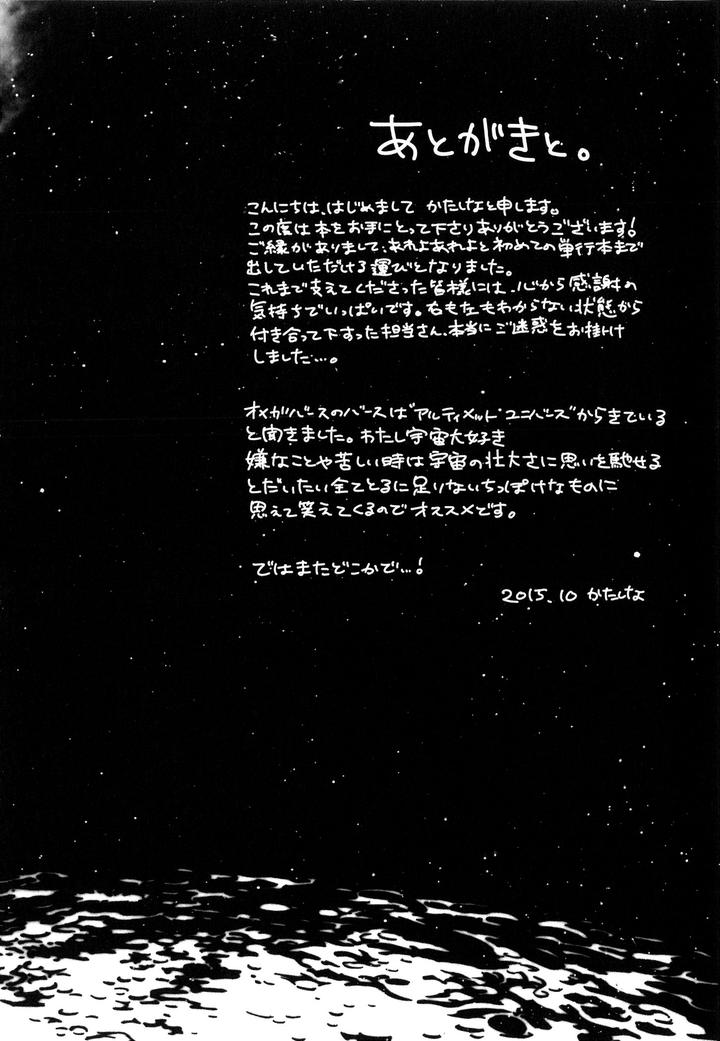 あとがきと。
こんにちは、はじめまして かたしなと申します。
この度は本をお手にとって下さりありがとうございます!
ご縁がありまして、あれよあれよと初めての単行本まで
出していただける運びとなりました。
これまで支えてくださった皆様には、心から感謝の
気持ちでいっぱいです。右も左もわからない状態から
付き合って下すった担当さん、本当にご迷惑をお掛け
しました…。
オメガバースのバースは"アルティメット・ユニバース"からきている
と聞きました。わたし宇宙大好き
嫌なことや苦しい時は宇宙の壮大さに思いを馳せる
とだいたい全てとるに足りないちっぽけなものに
思えて笑えてくるのでオススメです。
ではまたどこかで…!
2015.10 かたしな